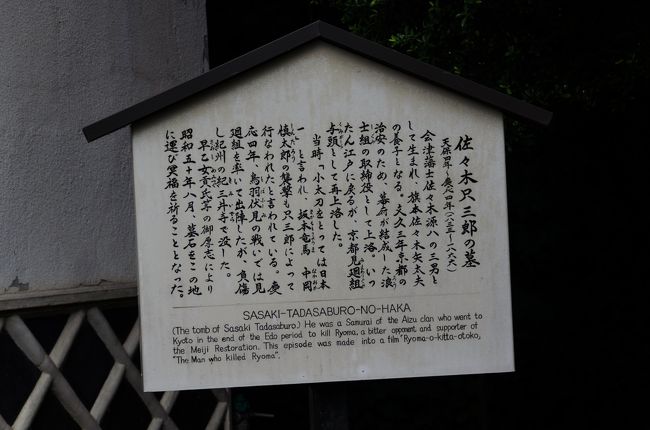 佐々木只三郎の墓
天保四年～慶応四年(一八三三～一八六八)
会津藩士佐々木源八の三男と
して生まれ、旗本佐々木矢太夫
の養子となる。文久三年京都の
治安のため、幕府が結成した浪
士組の取締役として上洛。いっ
たん江戸に戻るが、京都見廻組
与頭として再上洛した。
当時「小太刀をとっては日本
一」と言われ、坂本竜馬、中岡
慎太郎の襲撃も只三郎によって
行なわれたと言われている。慶
応四年、鳥羽伏見の戦いでは見
廻組を率いて出陣したが、負傷
し紀州の紀三井寺で没した。
早乙女貢氏等の御厚志により
昭和五十年八月、墓石をこの地
に運び冥福を祈ることとなった。
SASAKI-TADASABURO-NO-HAKA
(The tomb of Sasaki Tadasaburo.) He was a Samurai of the Aizu clan who went to
Kyoto in the end of the Edo period to kill Ryoma, a bitter opponent and supporter of
the Meiji Restoration. This episode was made into a film "Ryoma-o-kitta-otoko,
"The Man who killed Ryoma".